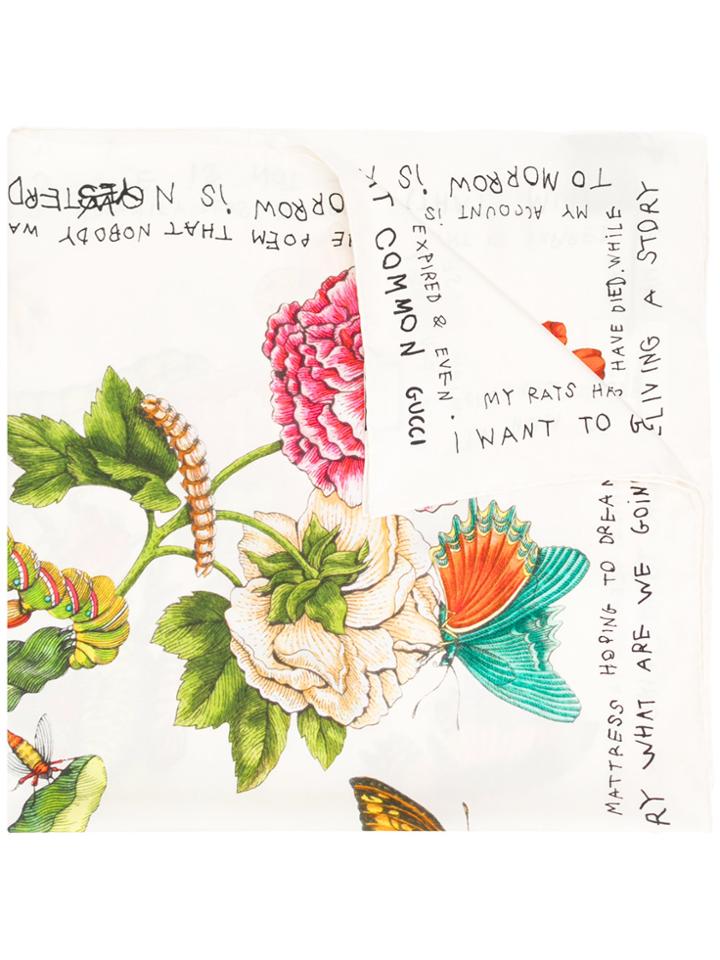 TOMORROW iS N YESTERD
ORROW iS
POEM THAT NOBODY WA
TOMORROW iS
MY ACCOUNT iS
EXPIRED & EVEN.
T COMMON GUCCI
MY RATS HAS HAVE DIED. WHILE
I WANT TO
LIVING A STORY
MATTRESS HOPING TO DREAM
RY WHAT ARE WE GOIN